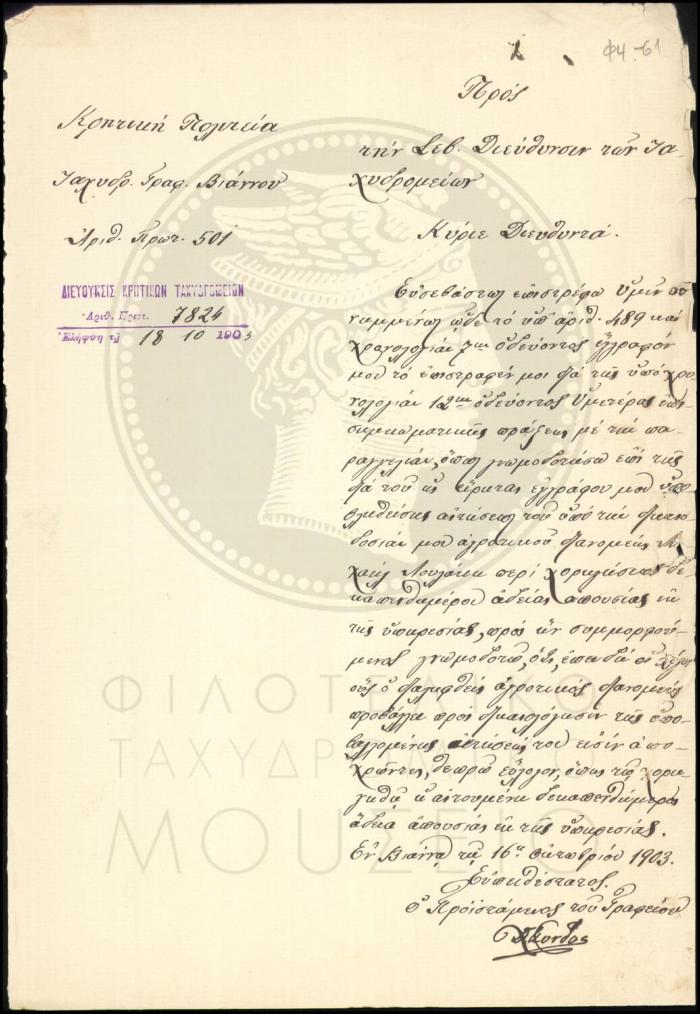 Φ4-61
Πρός
Κρητική Πολιτεία
τὴν Σεβ. Διεύθυνσιν τῶν Τα-
χυδρομείων
Ταχυδρ. Γραφ. Βιάννου
Ἀριθ. Πρωτ. 501
Κύριε Διευθυντά.
ΔΙΕΥΘΥΝΣΙΣ ΚΡΗΤΙΚΩΝ ΤΑΧΥΔΡΟΜΕΙΩΝ
Ἀριθ. Πρωτ. 7824
Ἐλήφθη τῇ 18 10 1903
Εὐσεβάστως ἐπιστρέφω ὑμῖν συ
νημμένως ὧδε τὸ ὑπ' ἀριθ. 489 καὶ
χρονολογίαν 7ην ὁδεύοντος ἔγγραφόν
μου τὸ ἐπιστραφέν μοι διὰ τῆς ὑπὸ χρο
νολογίαν 12ην ὁδεύοντος Ὑμετέρας ἐπι
σημειωματικῆς πράξεως, μὲ τὴν πα-
ραγγελίαν, ὅπως γνωμοδοτήσω ἐπὶ τῆς
διὰ τοῦ ὡς εἴρηται ἐγγράφου μου ὑπο
βληθείσης αἰτήσεως τοῦ ὑπὸ τὴν δικαιο
δοσίαν μου ἀγροτικοῦ διανομέως Μι
χαὴλ περὶ χορηγήσεως δε
καπενθημέρου ἀδείας ἀπουσίας ἐκ
τῆς ὑπηρεσίας, πρὸς ἣν συμμορφού
μενος γνωμοδοτῶ, ὅτι, ἐπειδὴ οἱ λόγοι
οὓς ὁ διαληφθεὶς ἀγροτικὸς διανομεὺς
προβάλλει πρὸς δικαιολόγησιν τῆς ὑπο-
βαλλομένης αἰτήσεώς του εἰσὶν ἀπο-
χρῶντες, θεωρῶ εὔλογον, ὅπως τῷ χορη
γηθῇ ἡ αἰτουμένη δεκαπενθήμερος
ἄδεια ἀπουσίας ἐκ τῆς ὑπηρεσίας.
Ἐν Βιάννῳ τῇ 16ῃ Ὀκτωβρίου 1903.
Εὐπειθέστατος.
ὁ Προϊστάμενος τοῦ Γραφείου
ΦΙΛΟΤΕΛΙΚΟ
ΤΑΧΥΔΡΟΜΙΚΟ
ΜΟΥΣΕΙΟ